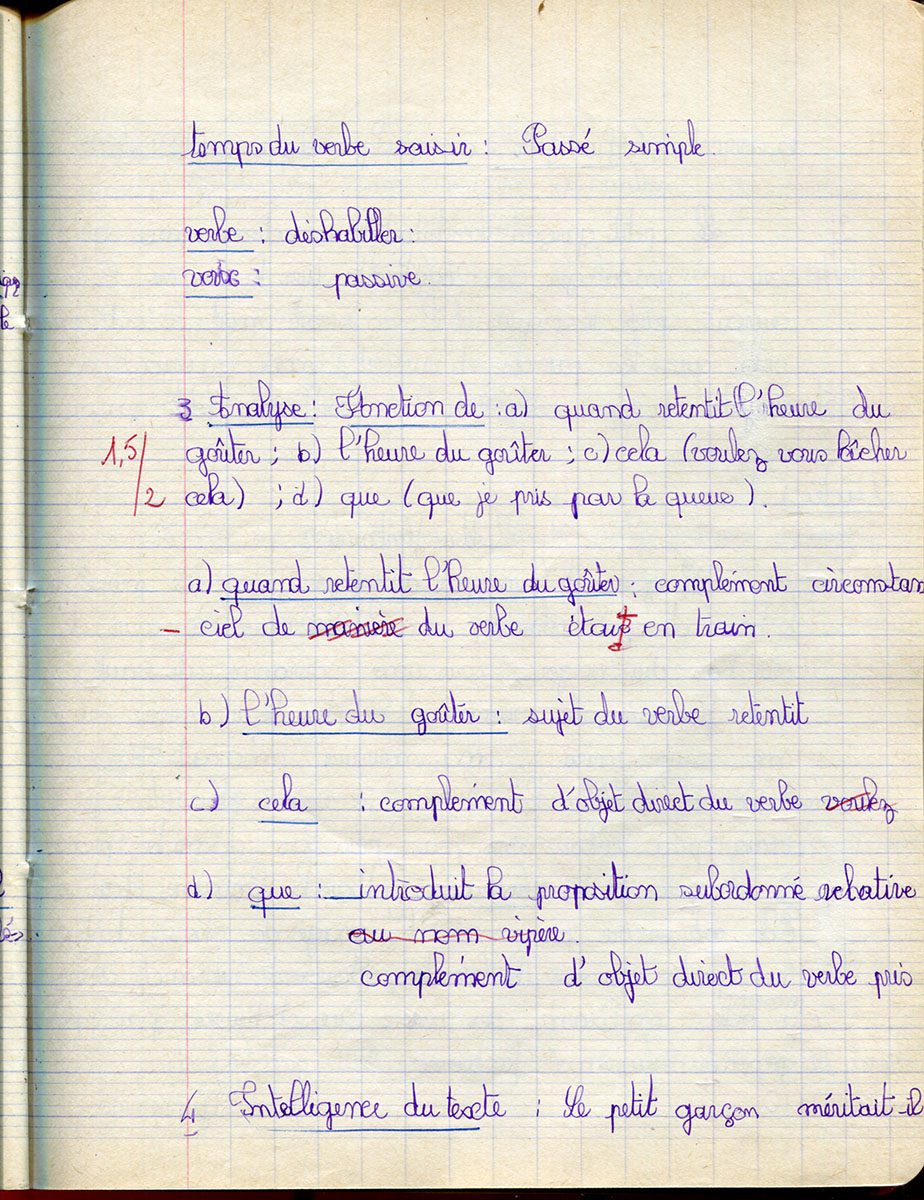 temps du verbe saisir : Passé simple.
verbe : déshabiller :
verbe : passive.
3 Analyse : Fonction de : a) quand retentit l'heure du
goûter ; b) l'heure du goûter ; c) cela (voulez vous bêcher
cela) ; d) que (que je pris par la queue).
1,5/2
a) quand retentit l'heure du goûter : complément circonstan
– ciel de manière du verbe étaut en train.
b) l'heure du goûter : sujet du verbe retentit
c) cela : complément d'objet direct du verbe voulez
d) que : introduit la proposition subordonné relative
au nom vipère.
complément d'objet direct du verbe pris
4 Intelligence du texte : Le petit garçon méritait-il